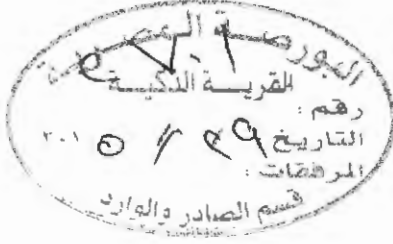 البورصة المصرية
القرية الذكية
رقم :
التاريخ ٢٩ / / ٢٠١٥
المرفقات :
قسم الصادر والوارد